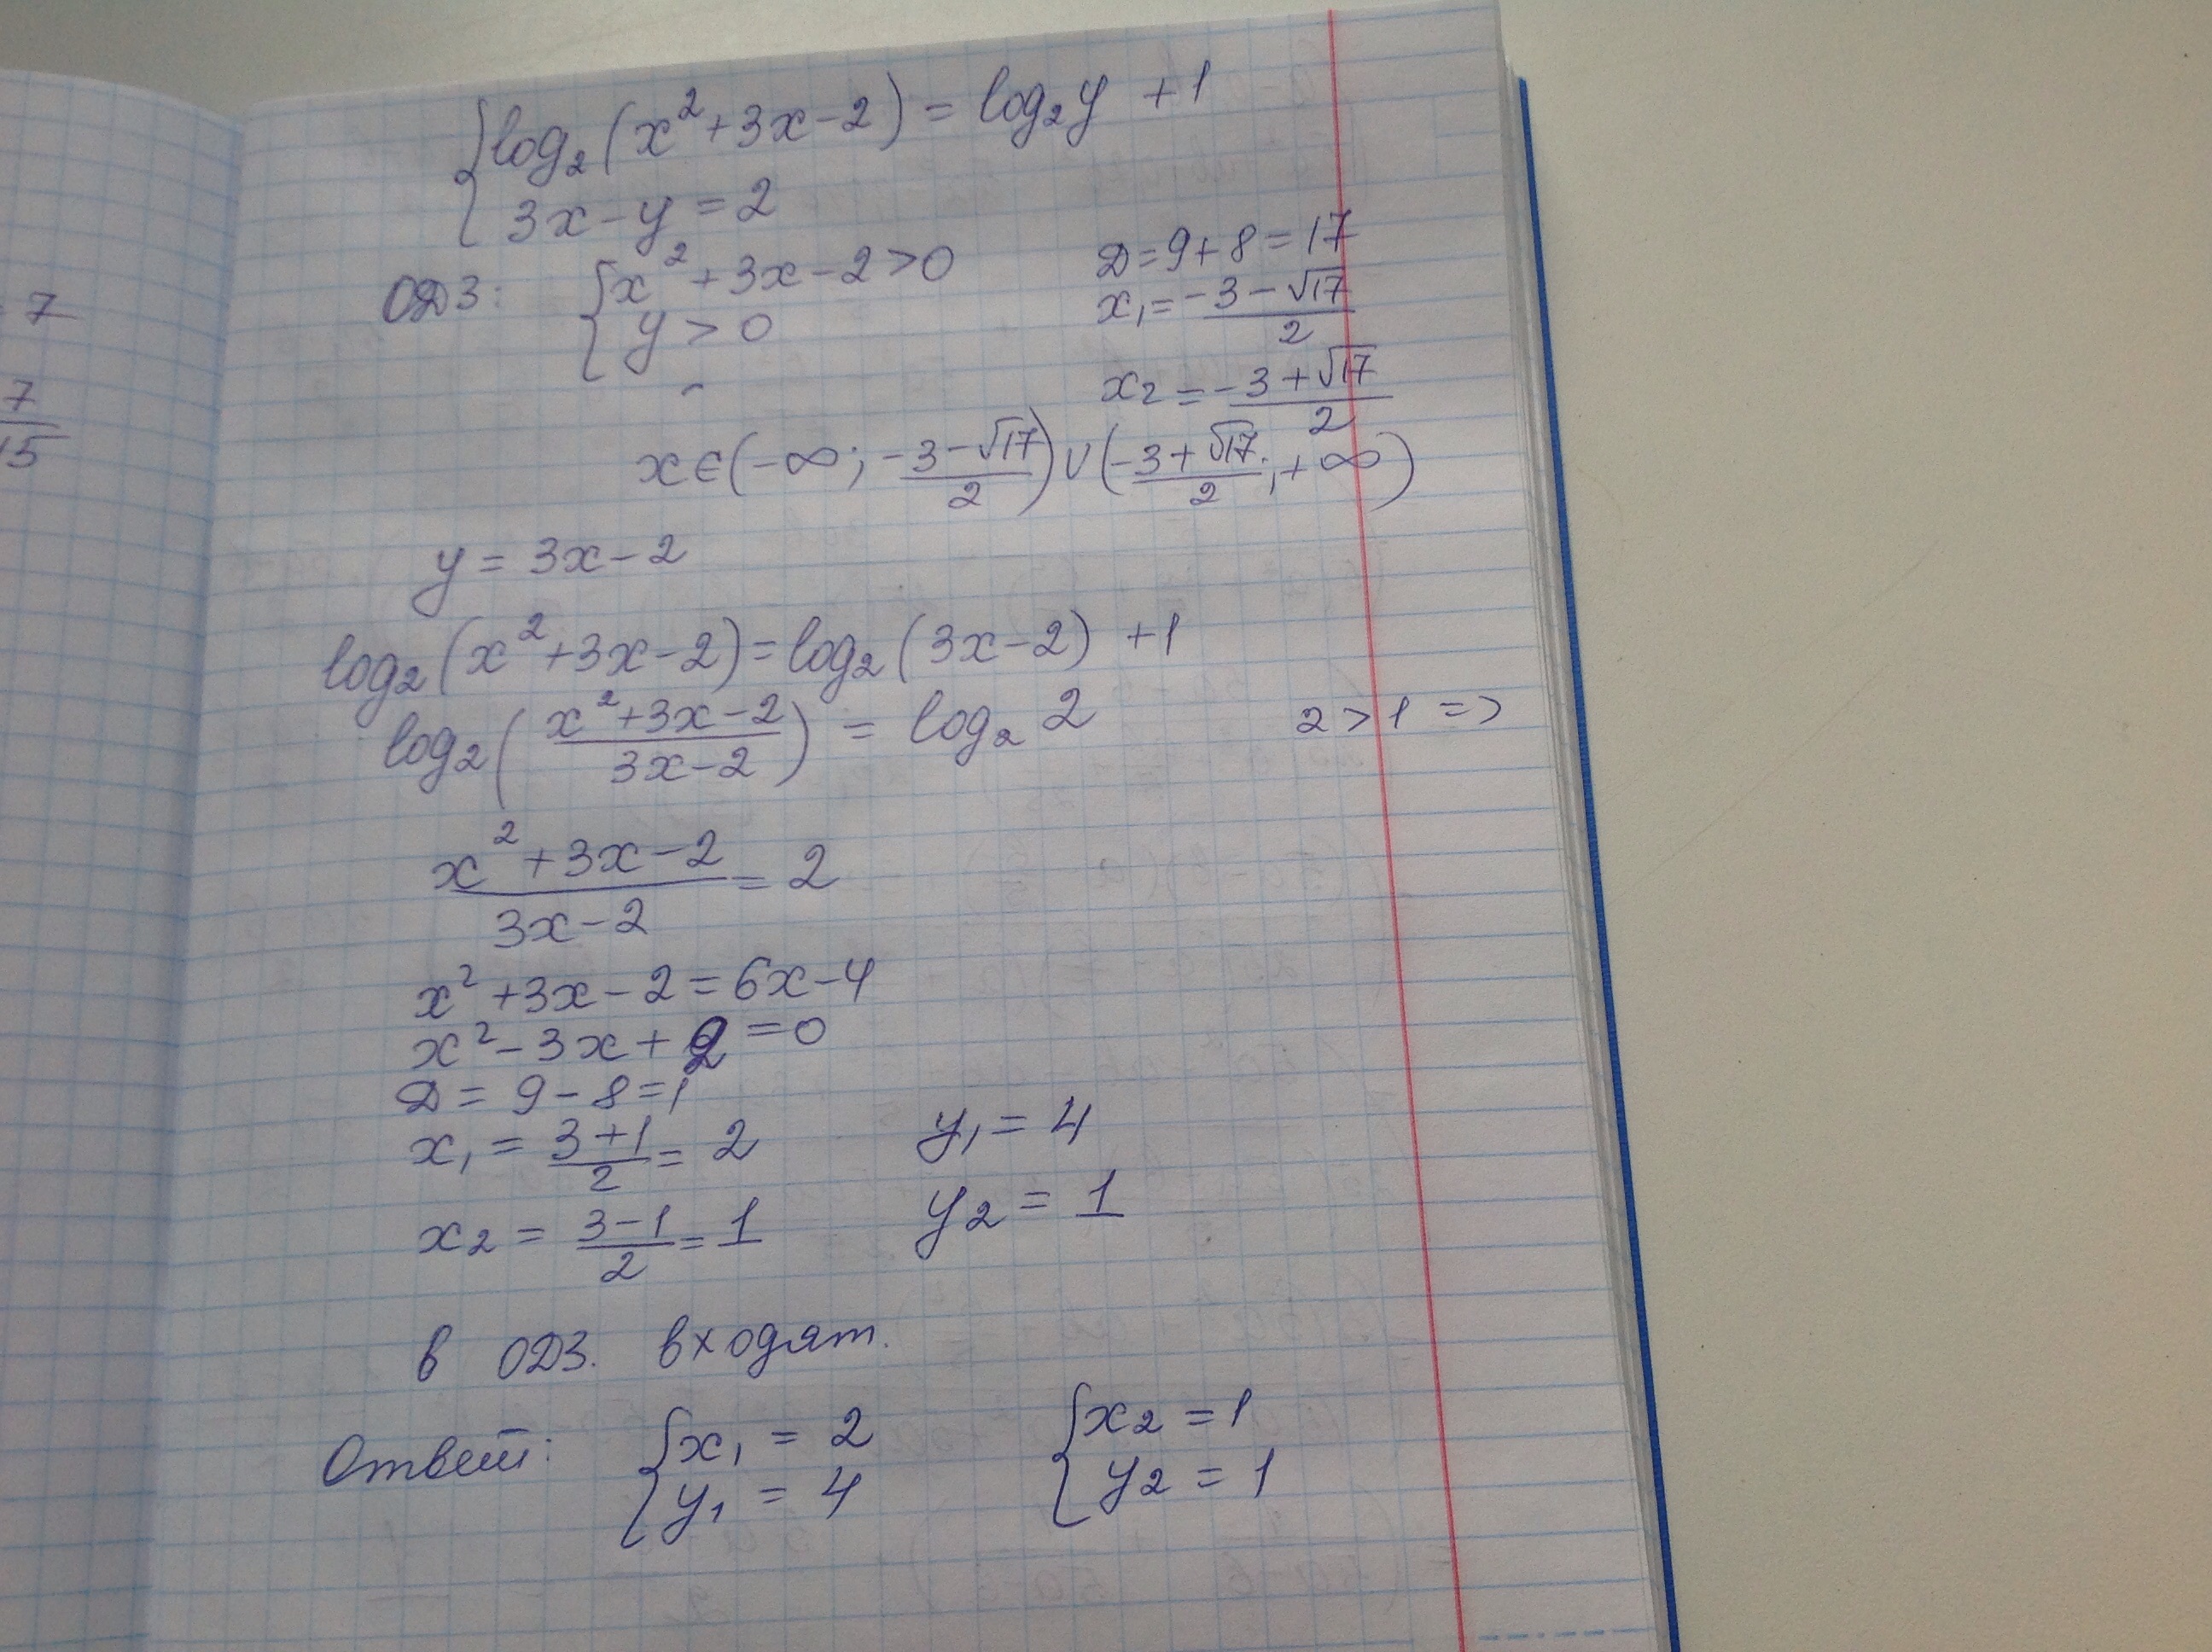 = 7
7
15
{ log₂(x²+3x-2) = log₂y +1
3x-y=2
ОДЗ: { x²+3x-2>0
y>0
Д=9+8=17
x₁=(-3-√17)/2
x₂=(-3+√17)/2
x∈(-∞; (-3-√17)/2)∪((-3+√17)/2; +∞)
y=3x-2
log₂(x²+3x-2)=log₂(3x-2) +1
log₂((x²+3x-2)/(3x-2)) = log₂2 2>1 =>
(x²+3x-2)/(3x-2) = 2
x²+3x-2=6x-4
x²-3x+2=0
Д=9-8=1
x₁=(3+1)/2=2 y₁=4
x₂=(3-1)/2=1 y₂=1
в ОДЗ. входят.
Ответ: { x₁=2 { x₂=1
y₁=4 y₂=1